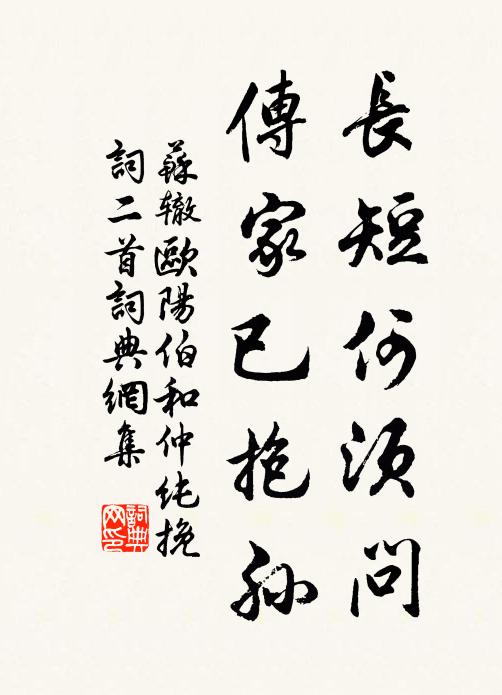 長短何須問
傳家已抱孫
蘇轍歐陽伯和仲純挽
詞二首詞典網集
詞典
网印